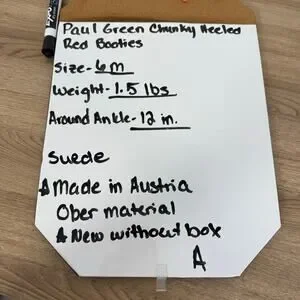 Paul Green Chunky Heeled
Red Booties
Size- 6 M
Weight- 1.5 lbs
Around Ankle- 12 in.
Suede
Made in Austria
Ober material
New without box
A